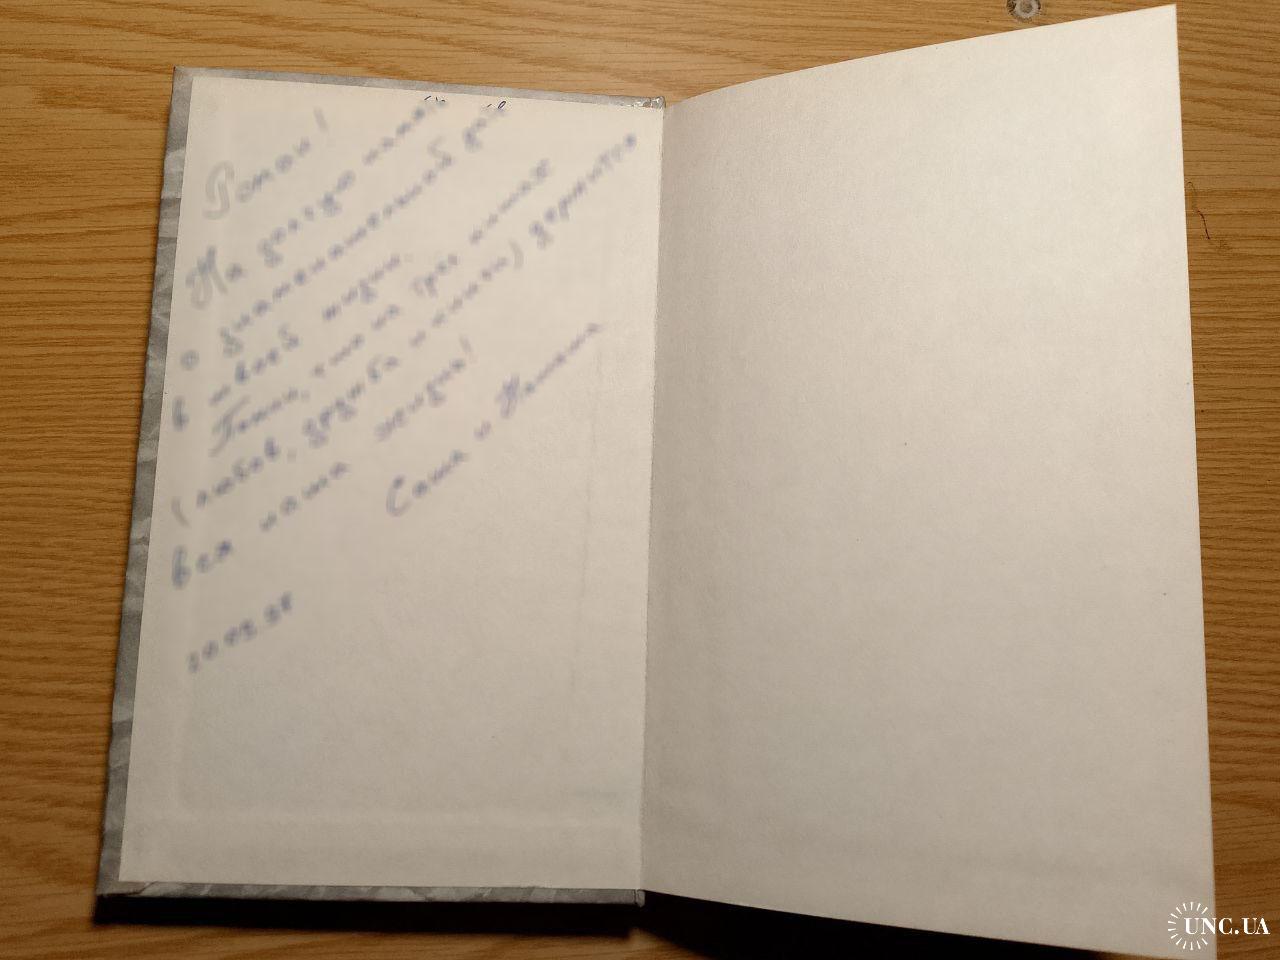 Роман!
На долгую память
о знаменательной дате
в твоей жизни.
Помни, что на трёх китах
(любов, дружба и книги) держится
вся наша жизнь!
Саша и Наташа
UNC.UA